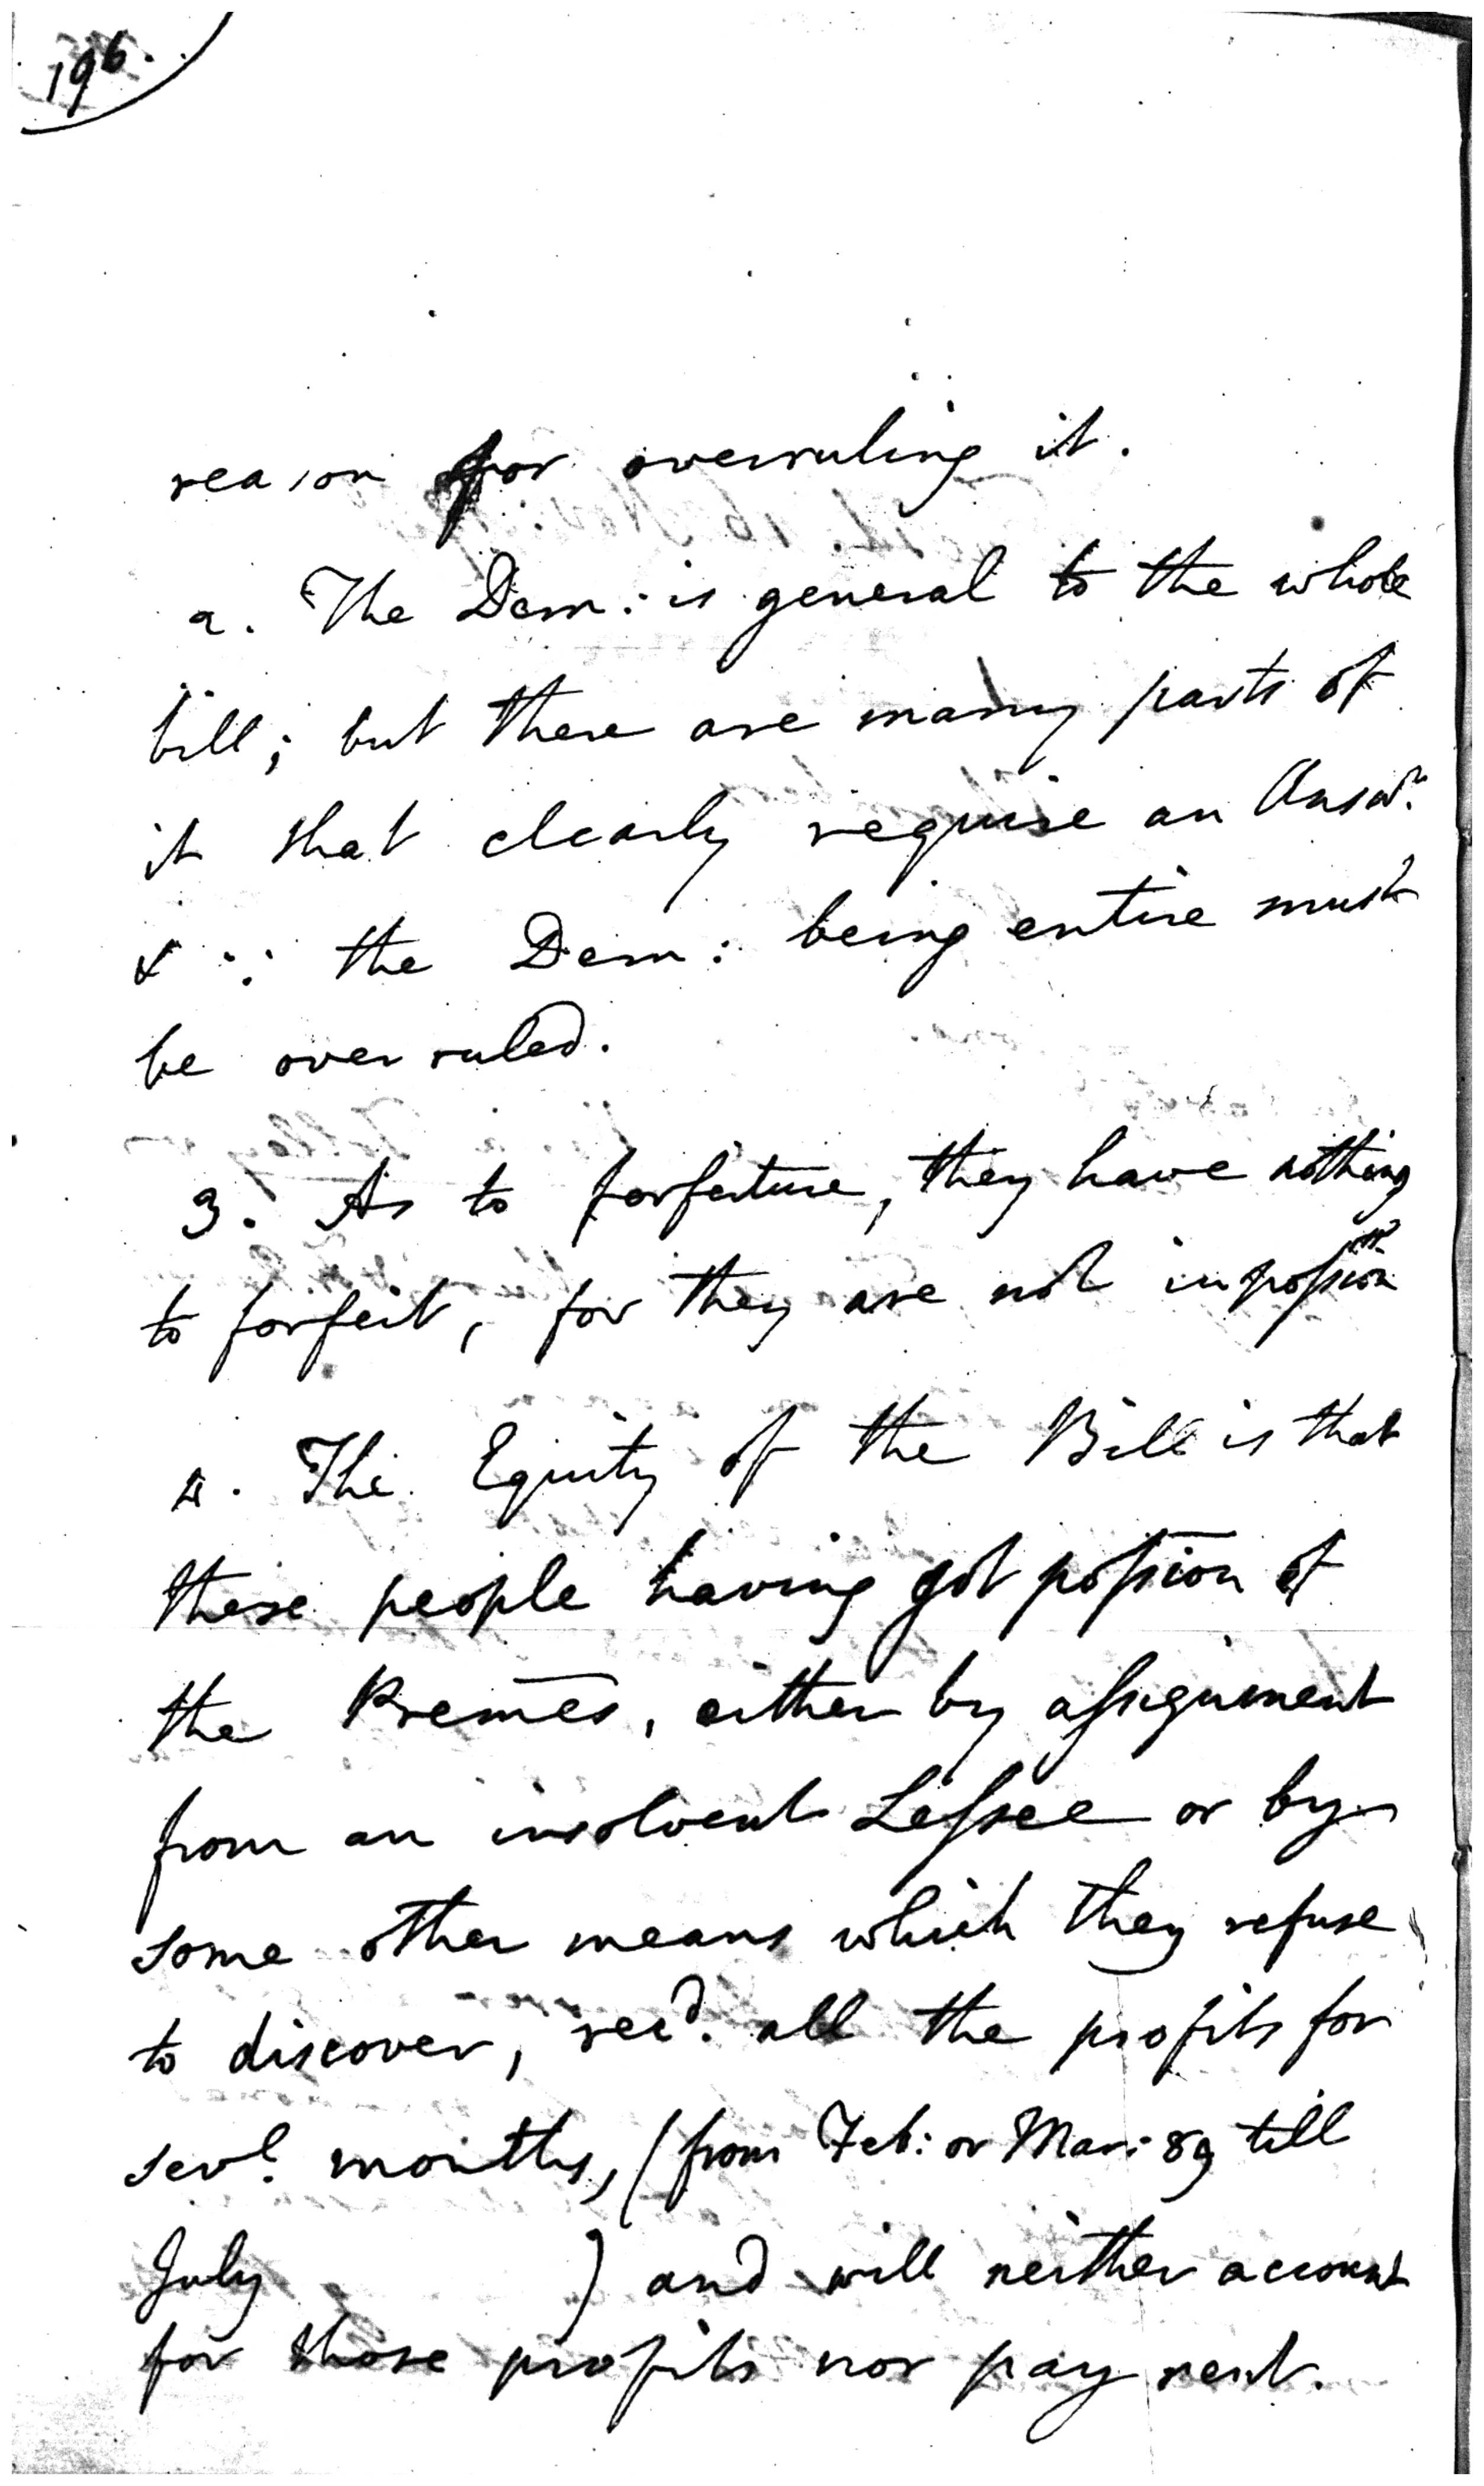 196.
reason for overruling it.
2. The Dem: is general to the whole
bill; but there are many parts of
it that clearly require an Answr.
& ∵ the Dem: being entire must
be over ruled.
3. As to forfeiture, they have nothing
to forfeit, for they are not in possion
4. The Equity of the Bill is that
these people having got possion of
the Premes, either by assignment
from an insolvent Lessee or by
some other means which they refuse
to discover, recd. all the profits for
sevl. months, (from Feb: or Mar: 89 till
July ) and will neither account
for those profits nor pay rent.